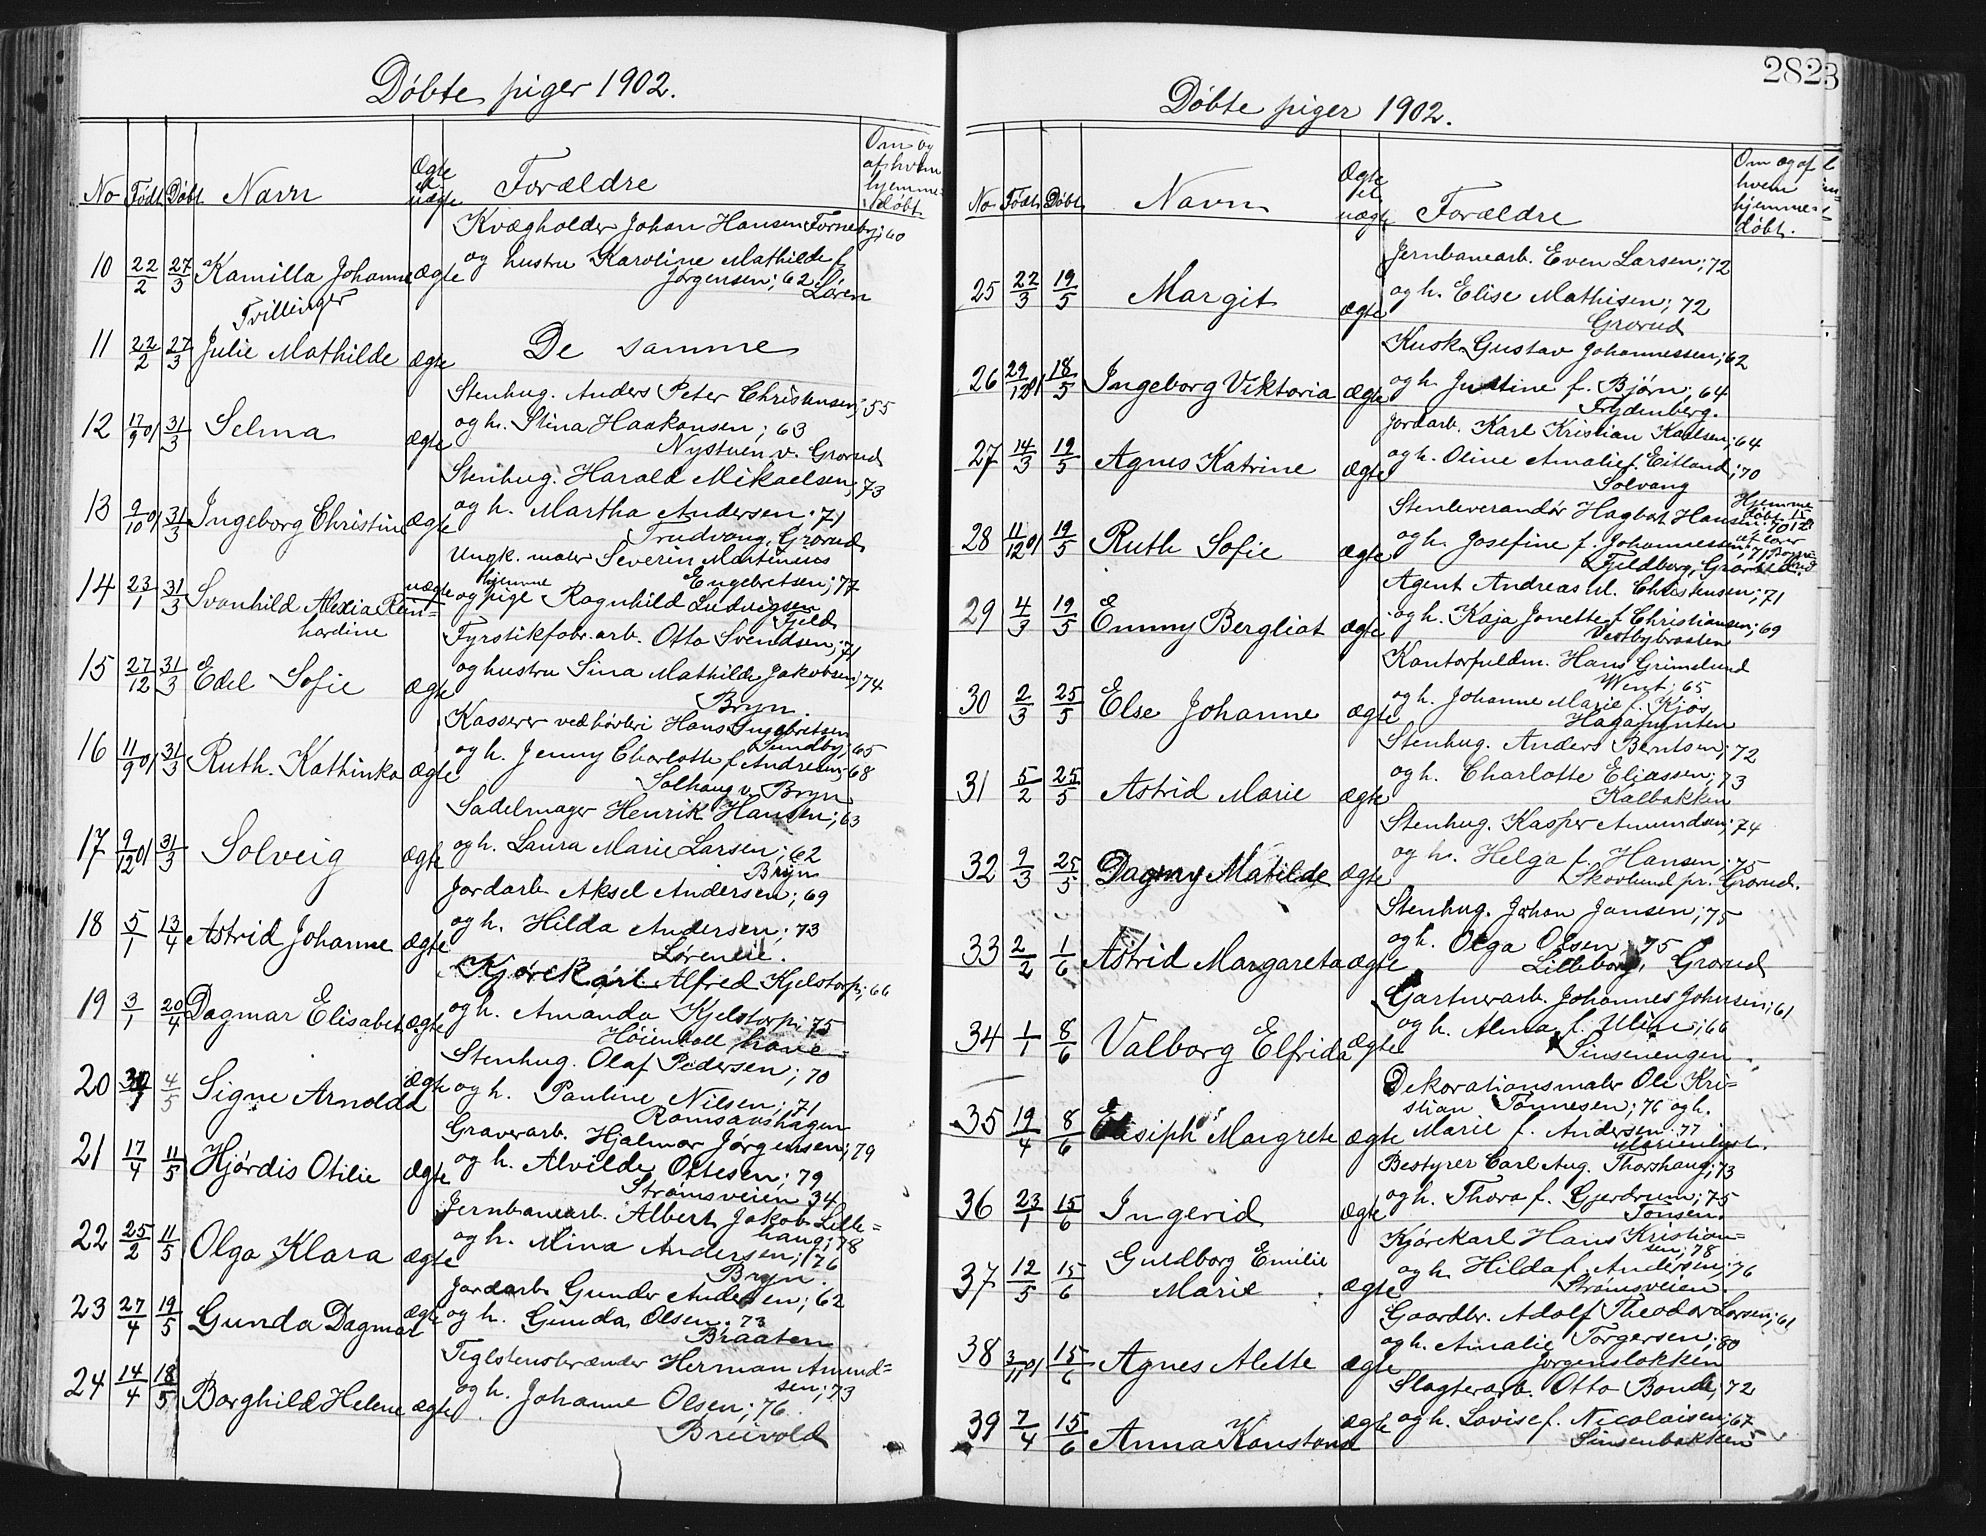 Døbte piger 1902.
No Født Døbt Navn Ægte el. uægte Forældre Om og af hvem hjemmedøbt
Kvægholder Johan Hansen Forneby; 60
10 22/2 27/3 Kamilla Johanne Ægte og hustru Karoline Mathilde f.
Jørgensen; 62
Løren
Tvillinger
11 22/2 27/3 Julie Mathilde Ægte De samme
Stenhug. Anders Peter Christensen; 55
12 17/9 01 31/3 Selma Ægte og h. Stina Haakonsen; 63
Nystuen v. Grorud
Stenhug. Harald Mikaelsen; 73
13 9/10 01 31/3 Ingeborg Christine Ægte og h. Martha Andersen; 71
Trudvang, Grorud
Ungk. maler Severin Martinius
Engebretsen; 77
14 23/1 31/3 Svanhild Alexia Ren- uægte og hjemme pige Ragnhild Ludvigsen
hardine Fjeld
Fyrstikfabr.arb. Otto Svendsen; 71
15 27/12 31/3 Edel Sofie Ægte og hustru Sina Mathilde Jakobsen; 74
Bryn.
Kasserer ved høvleri Hans Ingebretsen
Sundby; 65
16 11/9 01 31/3 Ruth Kathinka Ægte og h. Jenny Charlotte f. Andresen; 68
Solhaug v. Bryn
Sadelmager Henrik Hansen; 63
17 9/12 01 31/3 Solveig Ægte og h. Laura Marie Larsen; 62
Bryn
Jordarb. Aksel Andersen; 69
18 5/1 13/4 Astrid Johanne Ægte og h. Hilda Andersen; 73
Kjørekarl Alfred Kjelstorp; 66
19 3/1 20/4 Dagmar Elisabet Ægte og h. Amanda Kjelstorp; 75
Høienhall have
Stenhug. Olaf Pedersen; 70
20 4/5 Signe Arnolda Ægte og h. Pauline Nilsen; 71
Romsaashagen
Graverarb. Hjalmar Jørgensen; 79
21 17/4 11/5 Hjørdis Otilie Ægte og h. Alvilde Ottesen; 79
Strømsveien 34
Jernbanearb. Albert Jakob Lille=
haug; 78
22 25/2 11/5 Olga Klara Ægte og h. Mina Andersen; 76
Bryn.
Jordarb. Gunder Andersen; 62
23 27/4 19/5 Gunda Dagmar Ægte og h. Gunda Olsen; 73
Braaten
Teglstensbrænder Herman Amund=
sen; 73
24 14/4 18/5 Borghild Helene Ægte og h. Johanne Olsen; 76
Breivold
2823
Døbte piger 1902.
No Født Døbt Navn Ægte el. uægte Forældre Om og af hvem hjemmedøbt.
Jernbanearb. Even Larsen; 72
25 22/3 19/5 Margit Ægte og h. Elise Mathisen; 72
Grorud
Kusk Gustav Johannessen; 62
26 29/12 01 18/5 Ingeborg Viktoria Ægte og h. Justine f. Bjørn; 64
Frydenberg.
Jordarb. Karl Kristian Karlsen; 64
27 14/3 19/5 Agnes Katrine Ægte og h. Oline Amalie f. Eitland; 70
Solvang
Stenleverandør Hagbart Hansen; 70 Hjemme døbt 15/12
28 11/12 01 19/5 Ruth Sofie Ægte og h. Josefine f. Johannessen; 71
Fjeldberg, Grorud.
Agent Andreas M. Christensen; 71
29 4/3 19/5 Emmy Bergliot Ægte og h. Kaja Jonette f. Christiansen; 69
Vestbybraaten
Kontorfuldm. Hans Grimelund
Went; 65
30 2/3 25/5 Else Johanne Ægte og h. Johanne Marie f. Kjøs
Hagapynten
Stenhug. Anders Berntsen; 72
31 5/2 25/5 Astrid Marie Ægte og h. Charlotte Eliassen; 73
Kalbakken
Stenhug. Kasper Amundsen; 74
32 9/3 25/5 Dagny Matilde Ægte og h. Helga f. Hansen; 75
Skovlund pr. Grorud.
Stenhug. Johan Jansen; 75
33 2/2 1/6 Astrid Margareta Ægte og h. Olga Olsen; 75
Lilleborg, Grorud
Gartnerarb. Johannes Johnsen; 61
34 1/1 8/6 Valborg Elfrida Ægte og h. Alma f. Ulin; 66
Sinsenengen.
Dekorationsmaler Ole Kri=
stian Tønnesen; 76 og h.
35 19/4 8/6 Margrete Ægte Marie f. Andersen; 77
Marienlyst.
Bestyrer Carl Aug. Thorshaug; 73
36 23/1 15/6 Ingerid Ægte og h. Thora f. Gjerdrum; 75
Tonsen.
Kjørekarl Hans Kristian=
sen; 78
37 12/5 15/6 Guldborg Emilie Marie Ægte og h. Hilda f. Andersen; 76
Strømsveien.
Gaardbr. Adolf Theodor Larsen; 61
38 3/11 01 15/6 Agnes Alette Ægte og h. Amalie Torgersen; 80
Jørgensløkken
Slagterarb. Otto Bonde; 72
39 7/4 15/6 Anna Konstanse Ægte og h. Lovise f. Nicolaisen; 67
Sinsenbakken